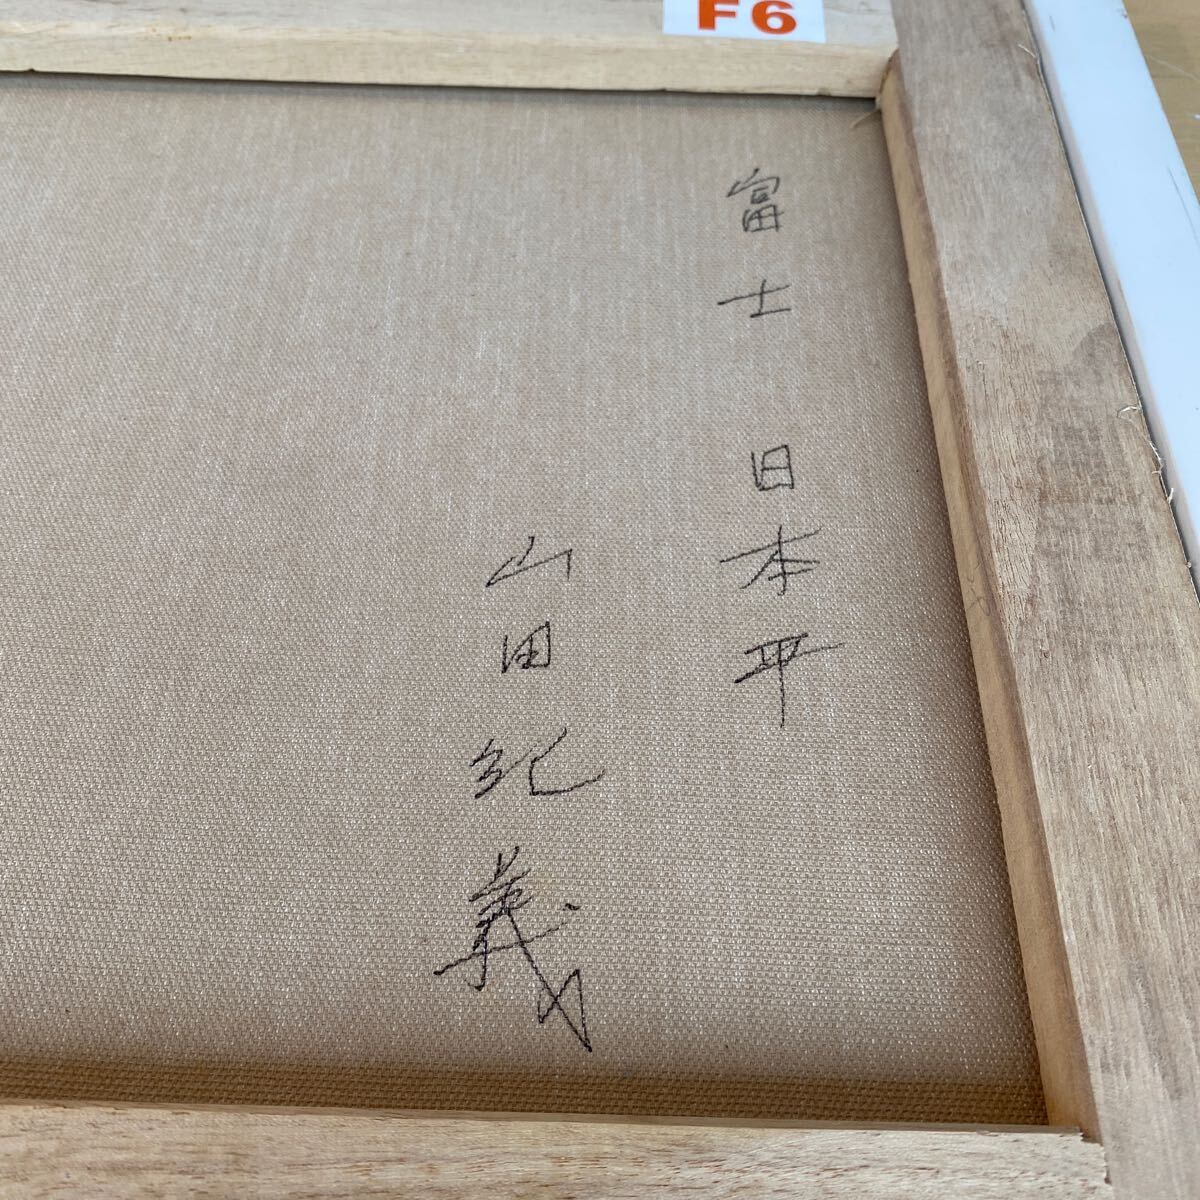 F6
富士 日本平
山田紀義